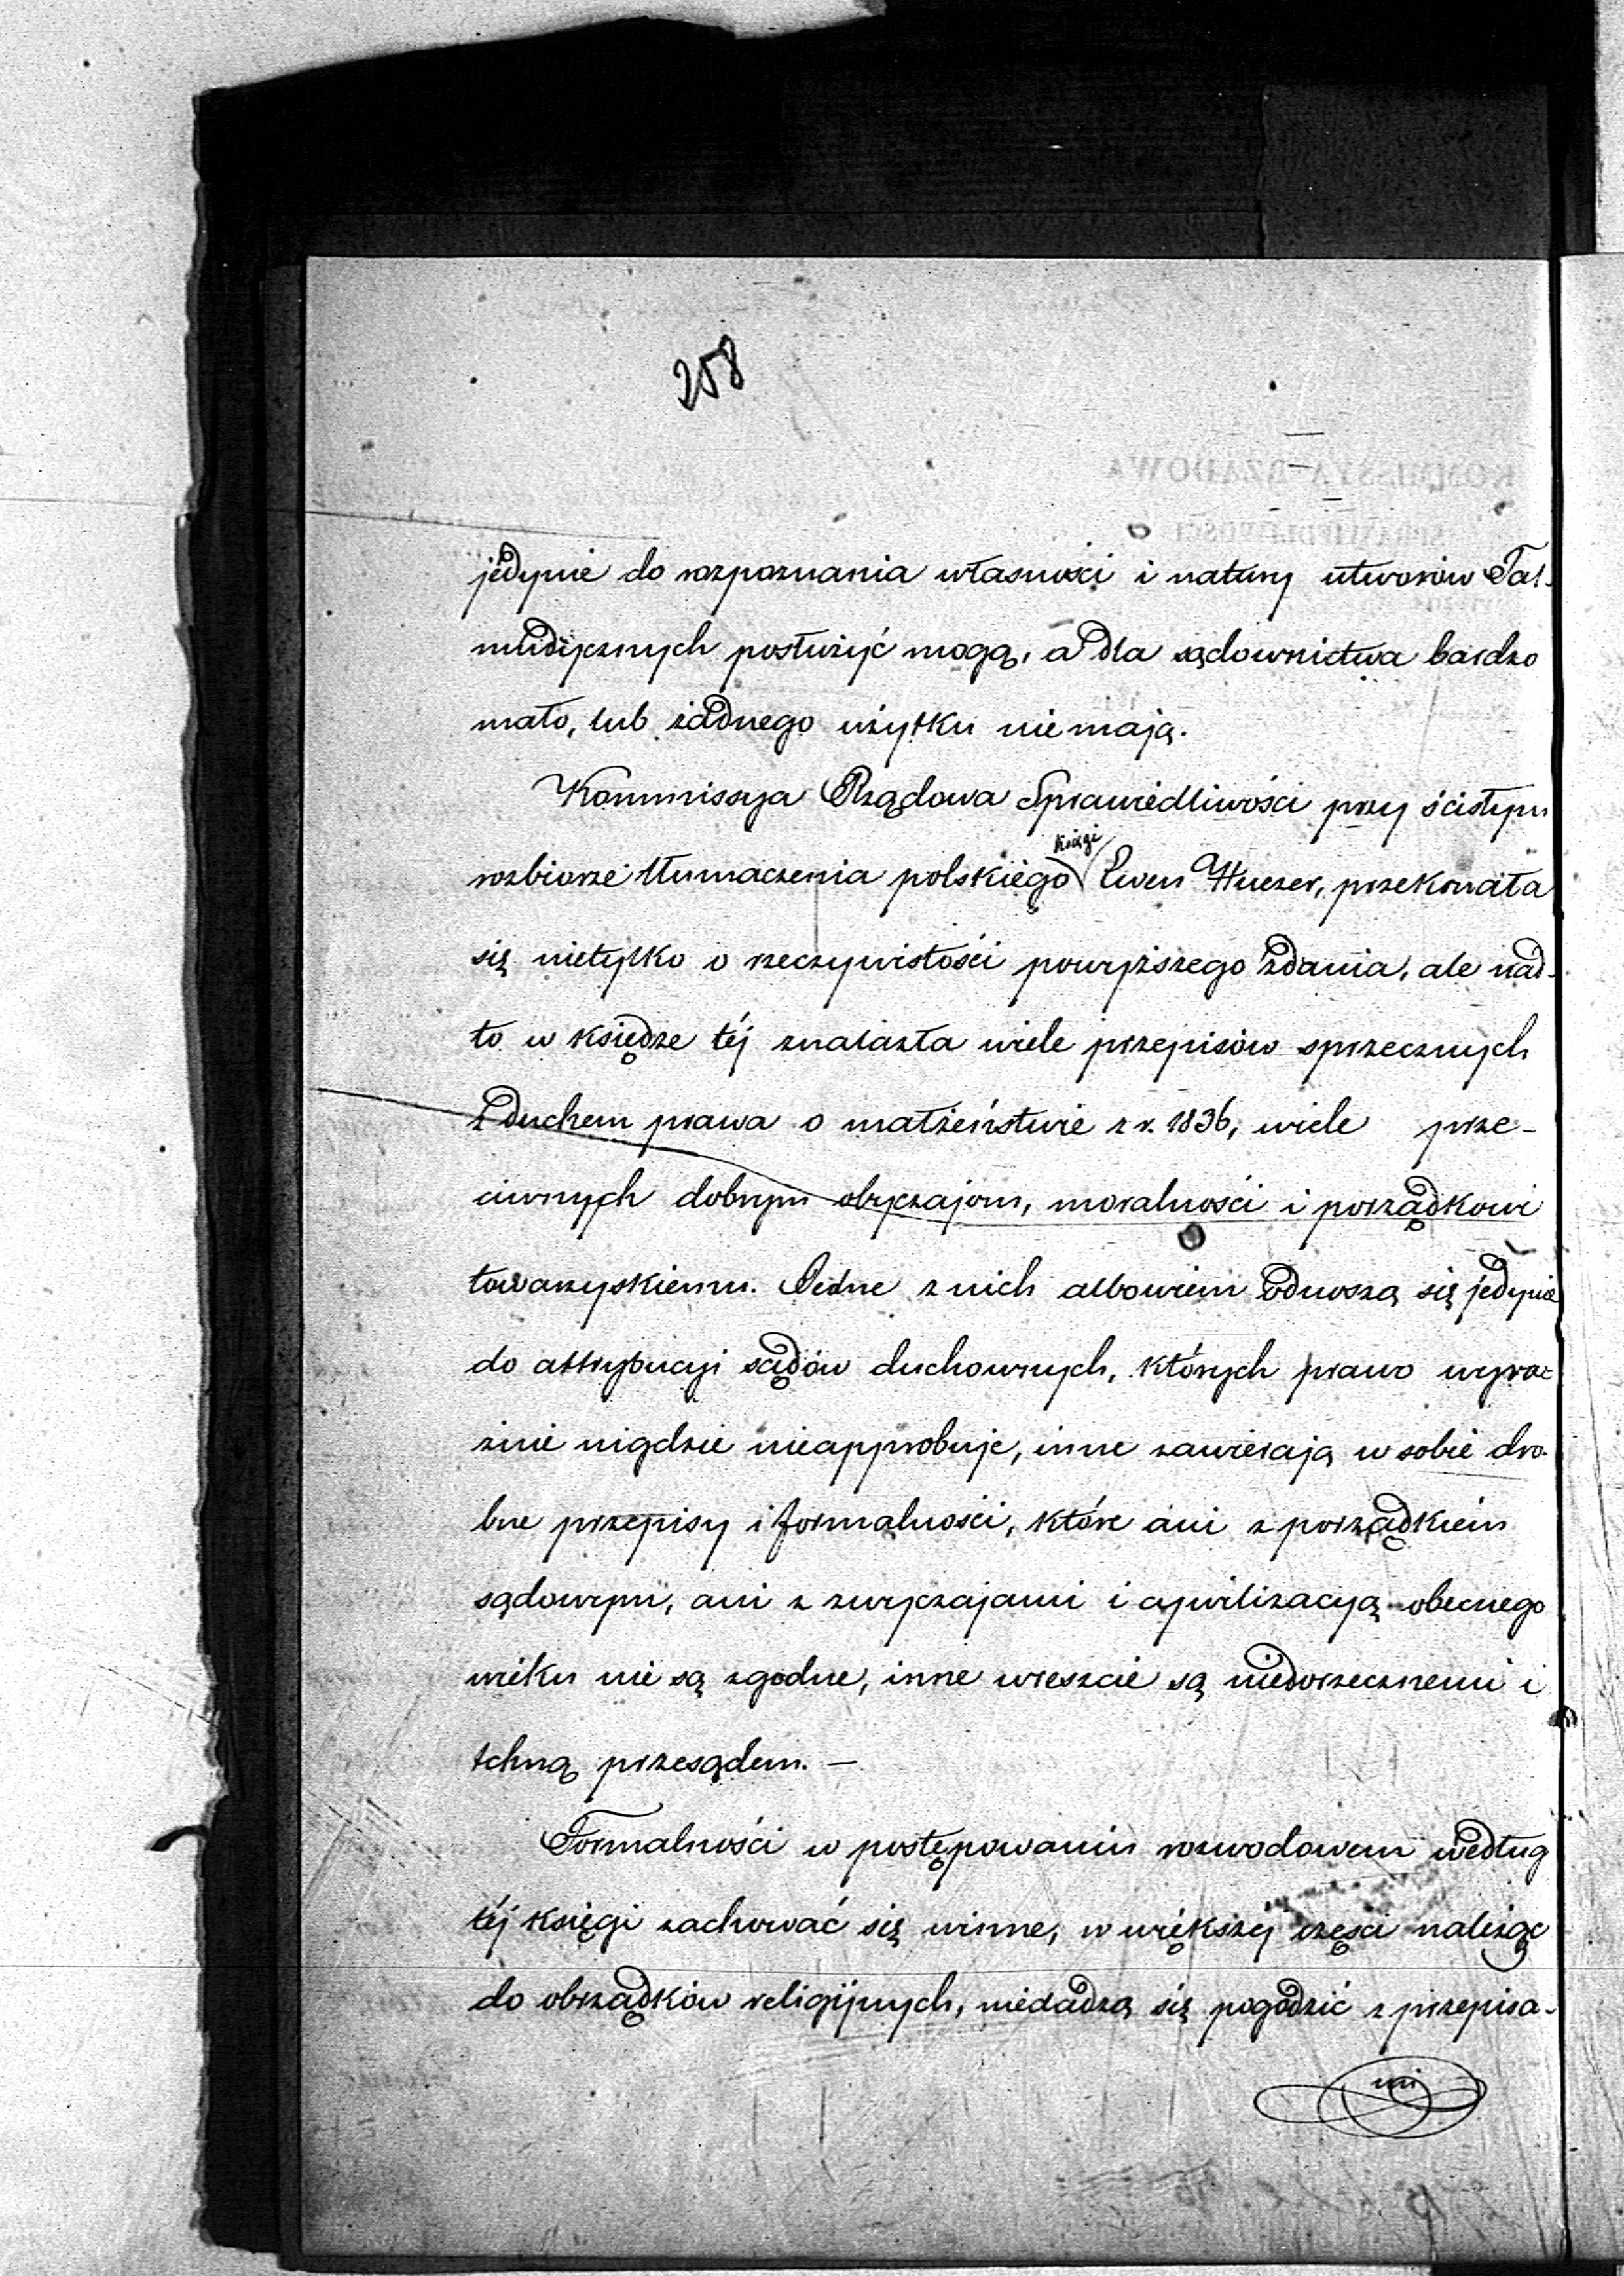 258
jedynie do rozpoznania własności i natury utworów Tal-
mudycznych posłużyć mogą, a dla sądownictwa bardzo
mało, lub żadnego użytku nie mają.
Kommissya Rządowa Sprawiedliwości przy ścisłym
księgi
rozbiorze tłumaczenia polskiego Ewen Huezer, przekonała
się nietylko o rzeczywistości powyższego zdania, ale nad-
to w księdze téj znalazła wiele przepisów sprzecznych
z duchem prawa o małżeństwie z r. 1836, wiele prze-
ciwnych dobrym obyczajom, moralności i porządkowi
towarzyskiemu. Jedne z nich albowiem odnoszą się jedynie
do attrybucyi sądów duchownych, których prawo wyra-
źnie nigdzie nieapprobuje, inne zawierają w sobie dro-
bne przepisy i formalności, które ani z porządkiem
sądowym, ani z zwyczajami i cywilizacyą obecnego
wieku nie są zgodne, inne wreszcie są niedorzecznemi i
tchną przesądem. —
Formalności w postępowaniu rozwodowem według
téj księgi zachować się winne, w większej części należąc
do obrządków religijnych, niedadzą się pogodzić z przepisa-
mi
KOMMISSYA RZĄDOWA
SPRAWIEDLIWOŚCI